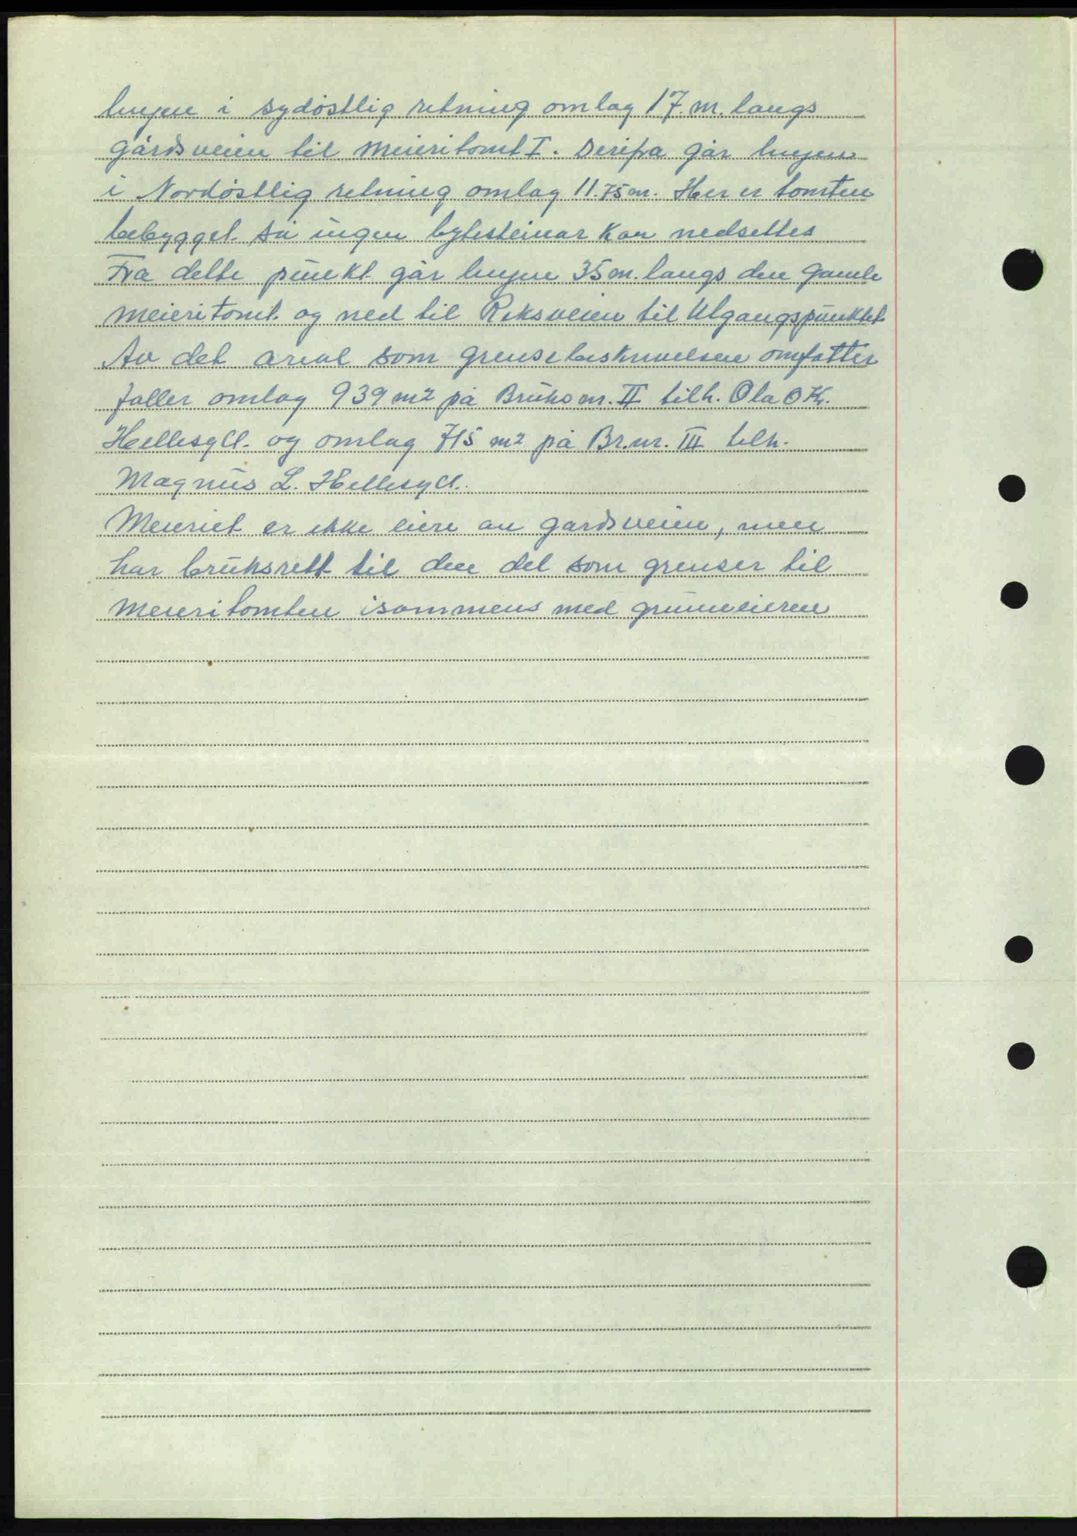 linjen i sydöstlig retning omlag 17 m. langs
gårdsveien til meieritomt I. Derifra går linjen
i Nordöstlig retning omlag 11.75 m. Her er tomten
bebygget så ingen bytesteinar kan nedsettes
Fra dette punkt går linjen 35 m. langs den gamle
meieritomt og ned til Riksveien til Utgangspunktet
Av det areal som grensebeskrivelsen omfatter
faller omlag 939 m² på Bruksnr. II tilh. Ola O.K.
Hellesylt. og omlag 715 m² på Br.nr. III tilh.
Magnus L. Hellesylt.
Meieriet er ikke eiere av gårdsveien, men
har bruksrett til den del som grenser til
meieritomten isammens med grunneieren